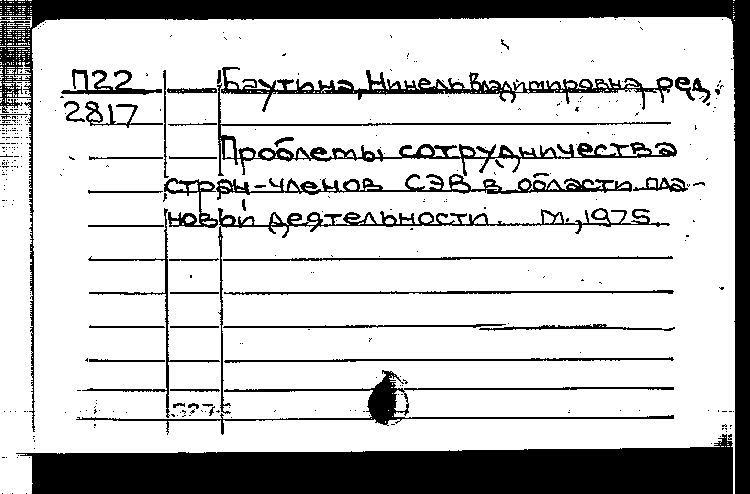 П22
2817
Баутина, Нинель Владимировна, ред.
Проблемы сотрудничества
стран-членов СЭВ в области пла-
новой деятельности. М., 1975.